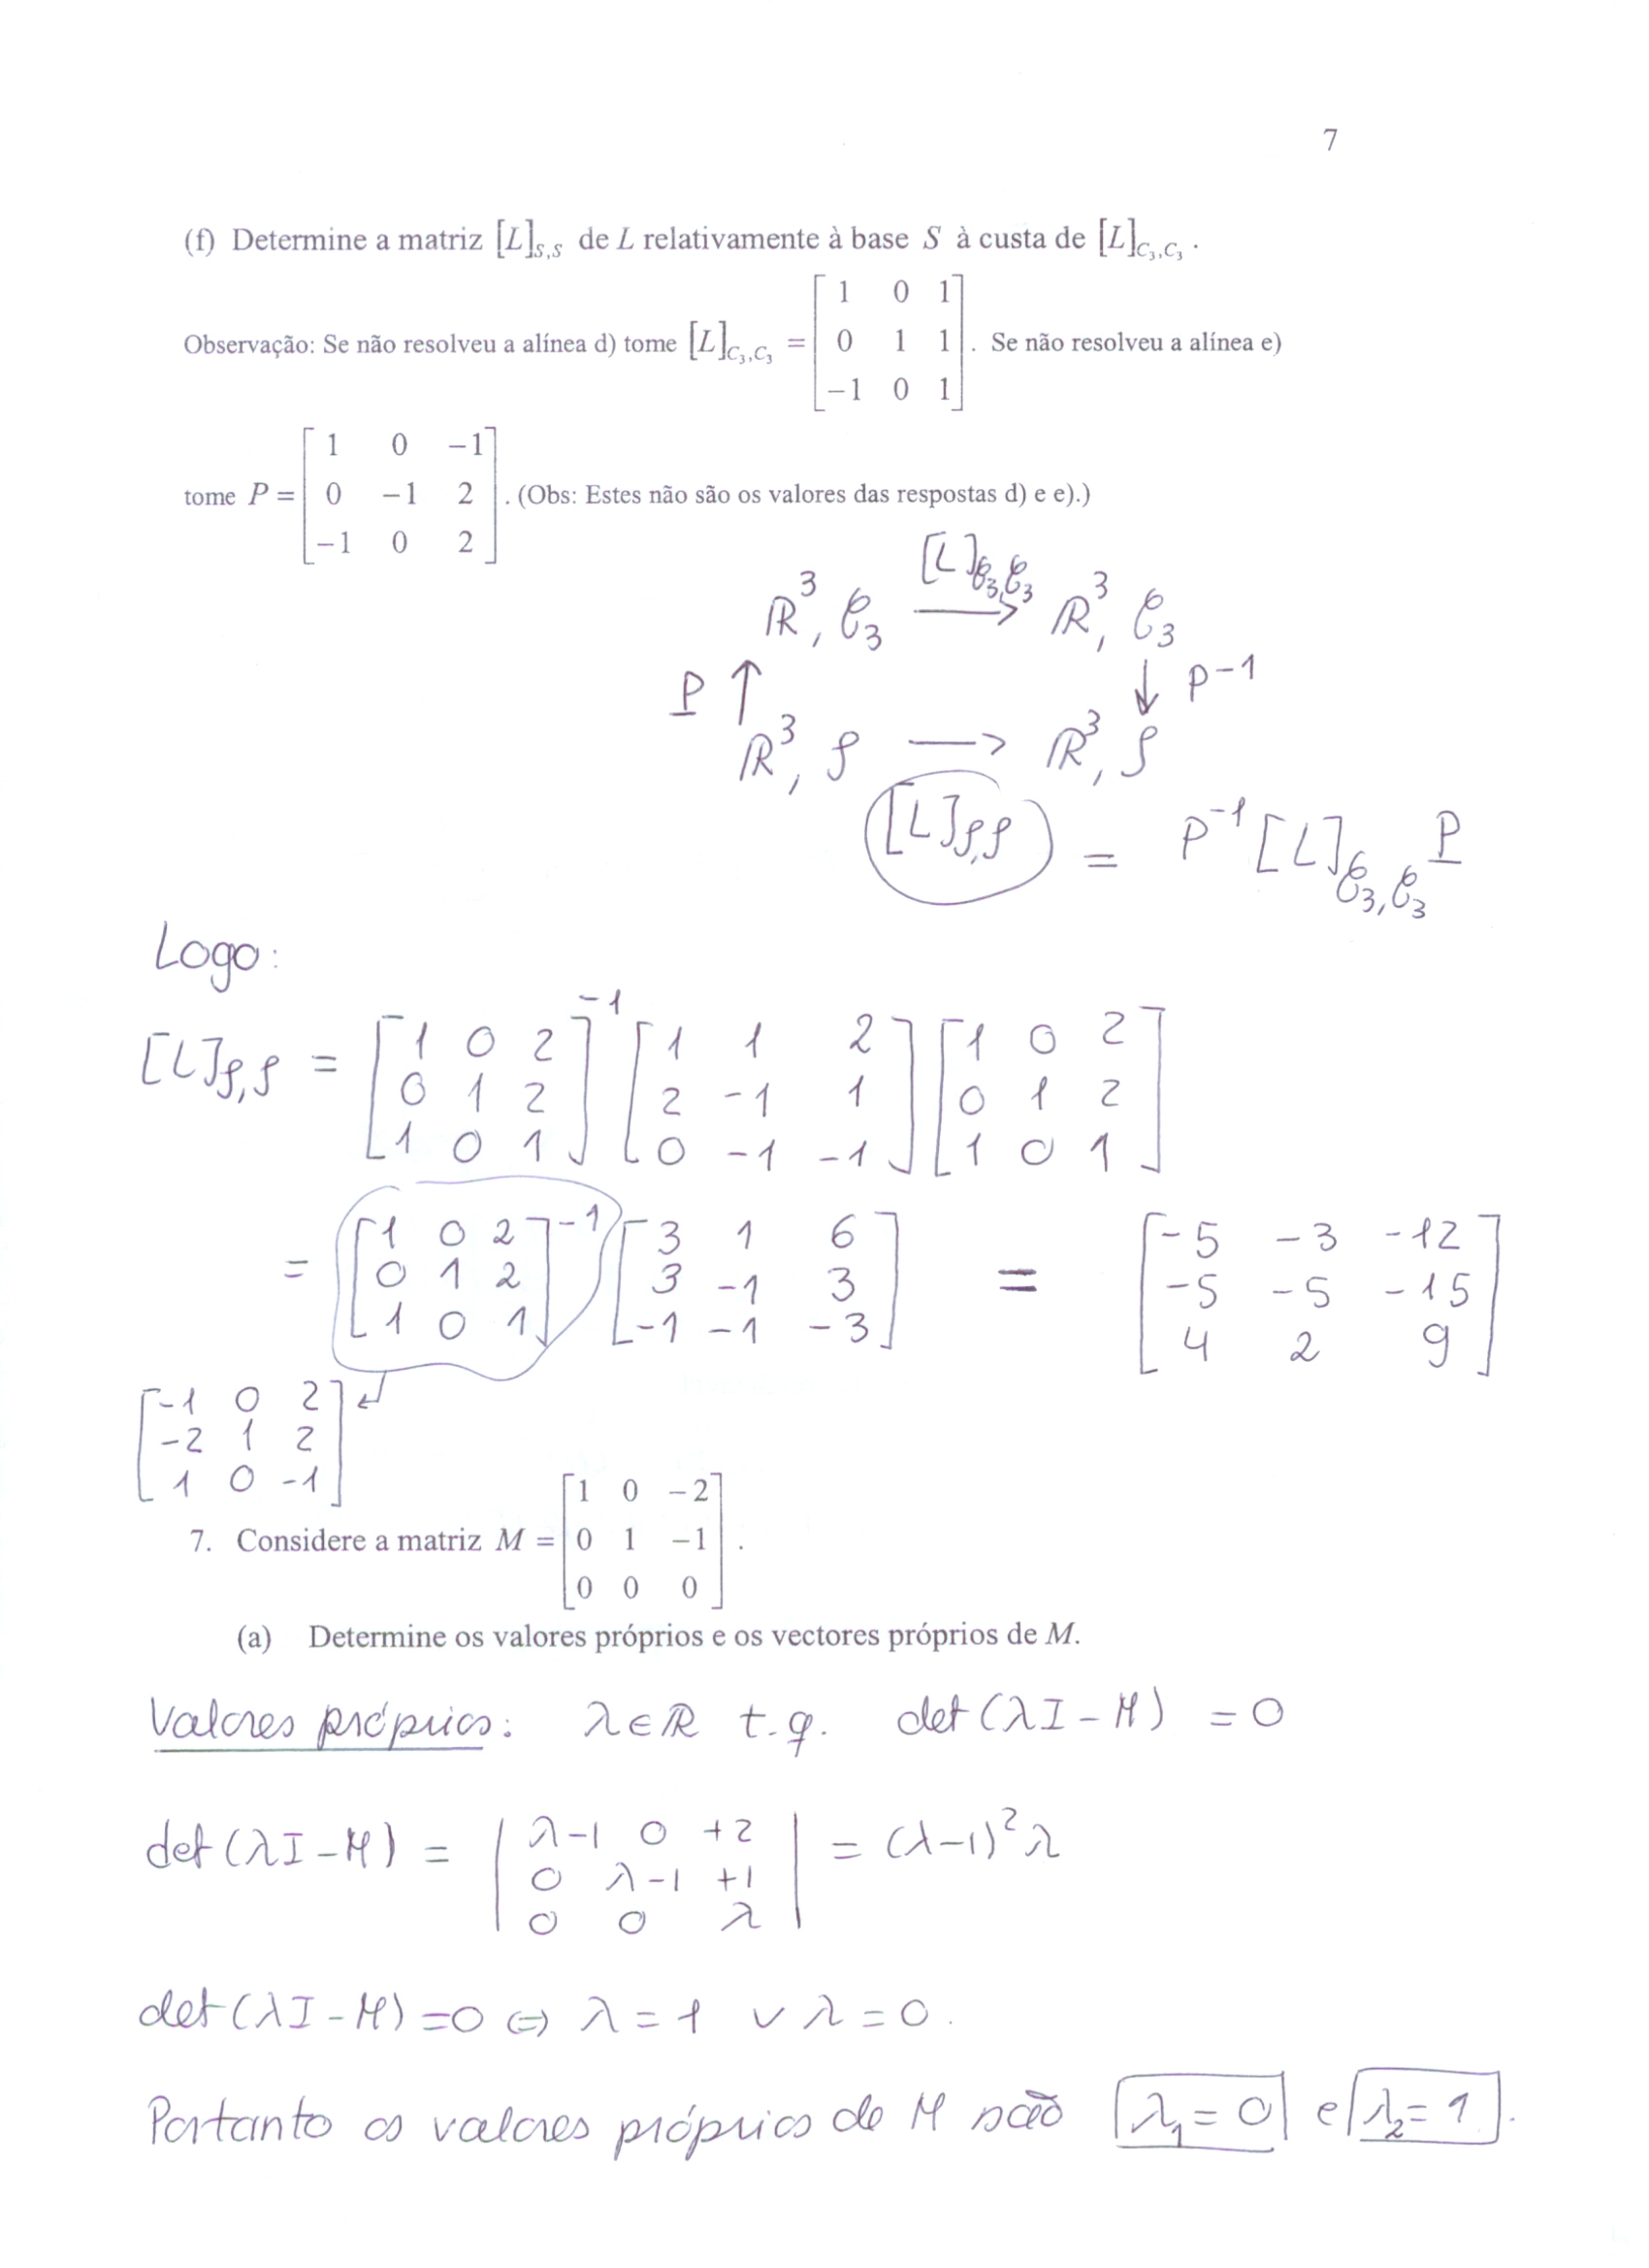 7
(f) Determine a matriz [L]_{S,S} de L relativamente à base S à custa de [L]_{C_3,C_3} .
Observação: Se não resolveu a alínea d) tome [L]_{C_3,C_3} = [1 0 1; 0 1 1; −1 0 1] . Se não resolveu a alínea e)
tome P = [1 0 −1; 0 −1 2; −1 0 2] . (Obs: Estes não são os valores das respostas d) e e).)
[L]_{C_3,C_3}
ℝ³, C_3 ⟶ ℝ³, C_3
P ↑ ↓ P⁻¹
ℝ³, S ⟶ ℝ³, S
[L]_{S,S} = P⁻¹ [L]_{C_3,C_3} P
Logo:
[L]_{S,S} = [1 0 2; 0 1 2; 1 0 1]⁻¹ [1 1 2; 2 -1 1; 0 -1 -1] [1 0 2; 0 1 2; 1 0 1]
= [1 0 2; 0 1 2; 1 0 1]⁻¹ [3 1 6; 3 -1 3; -1 -1 -3] = [-5 -3 -12; -5 -5 -15; 4 2 9]
[-1 0 2; -2 1 2; 1 0 -1] ↵
7. Considere a matriz M = [1 0 −2; 0 1 −1; 0 0 0] .
(a) Determine os valores próprios e os vectores próprios de M.
Valores próprios: λ∈ℝ t.q. det(λI-M) = 0
det(λI-M) = |λ-1 0 +2; 0 λ-1 +1; 0 0 λ| = (λ-1)²λ
det(λI-M)=0 ⇔ λ=1 ∨ λ=0.
Portanto os valores próprios de M são λ₁=0 e λ₂=1.